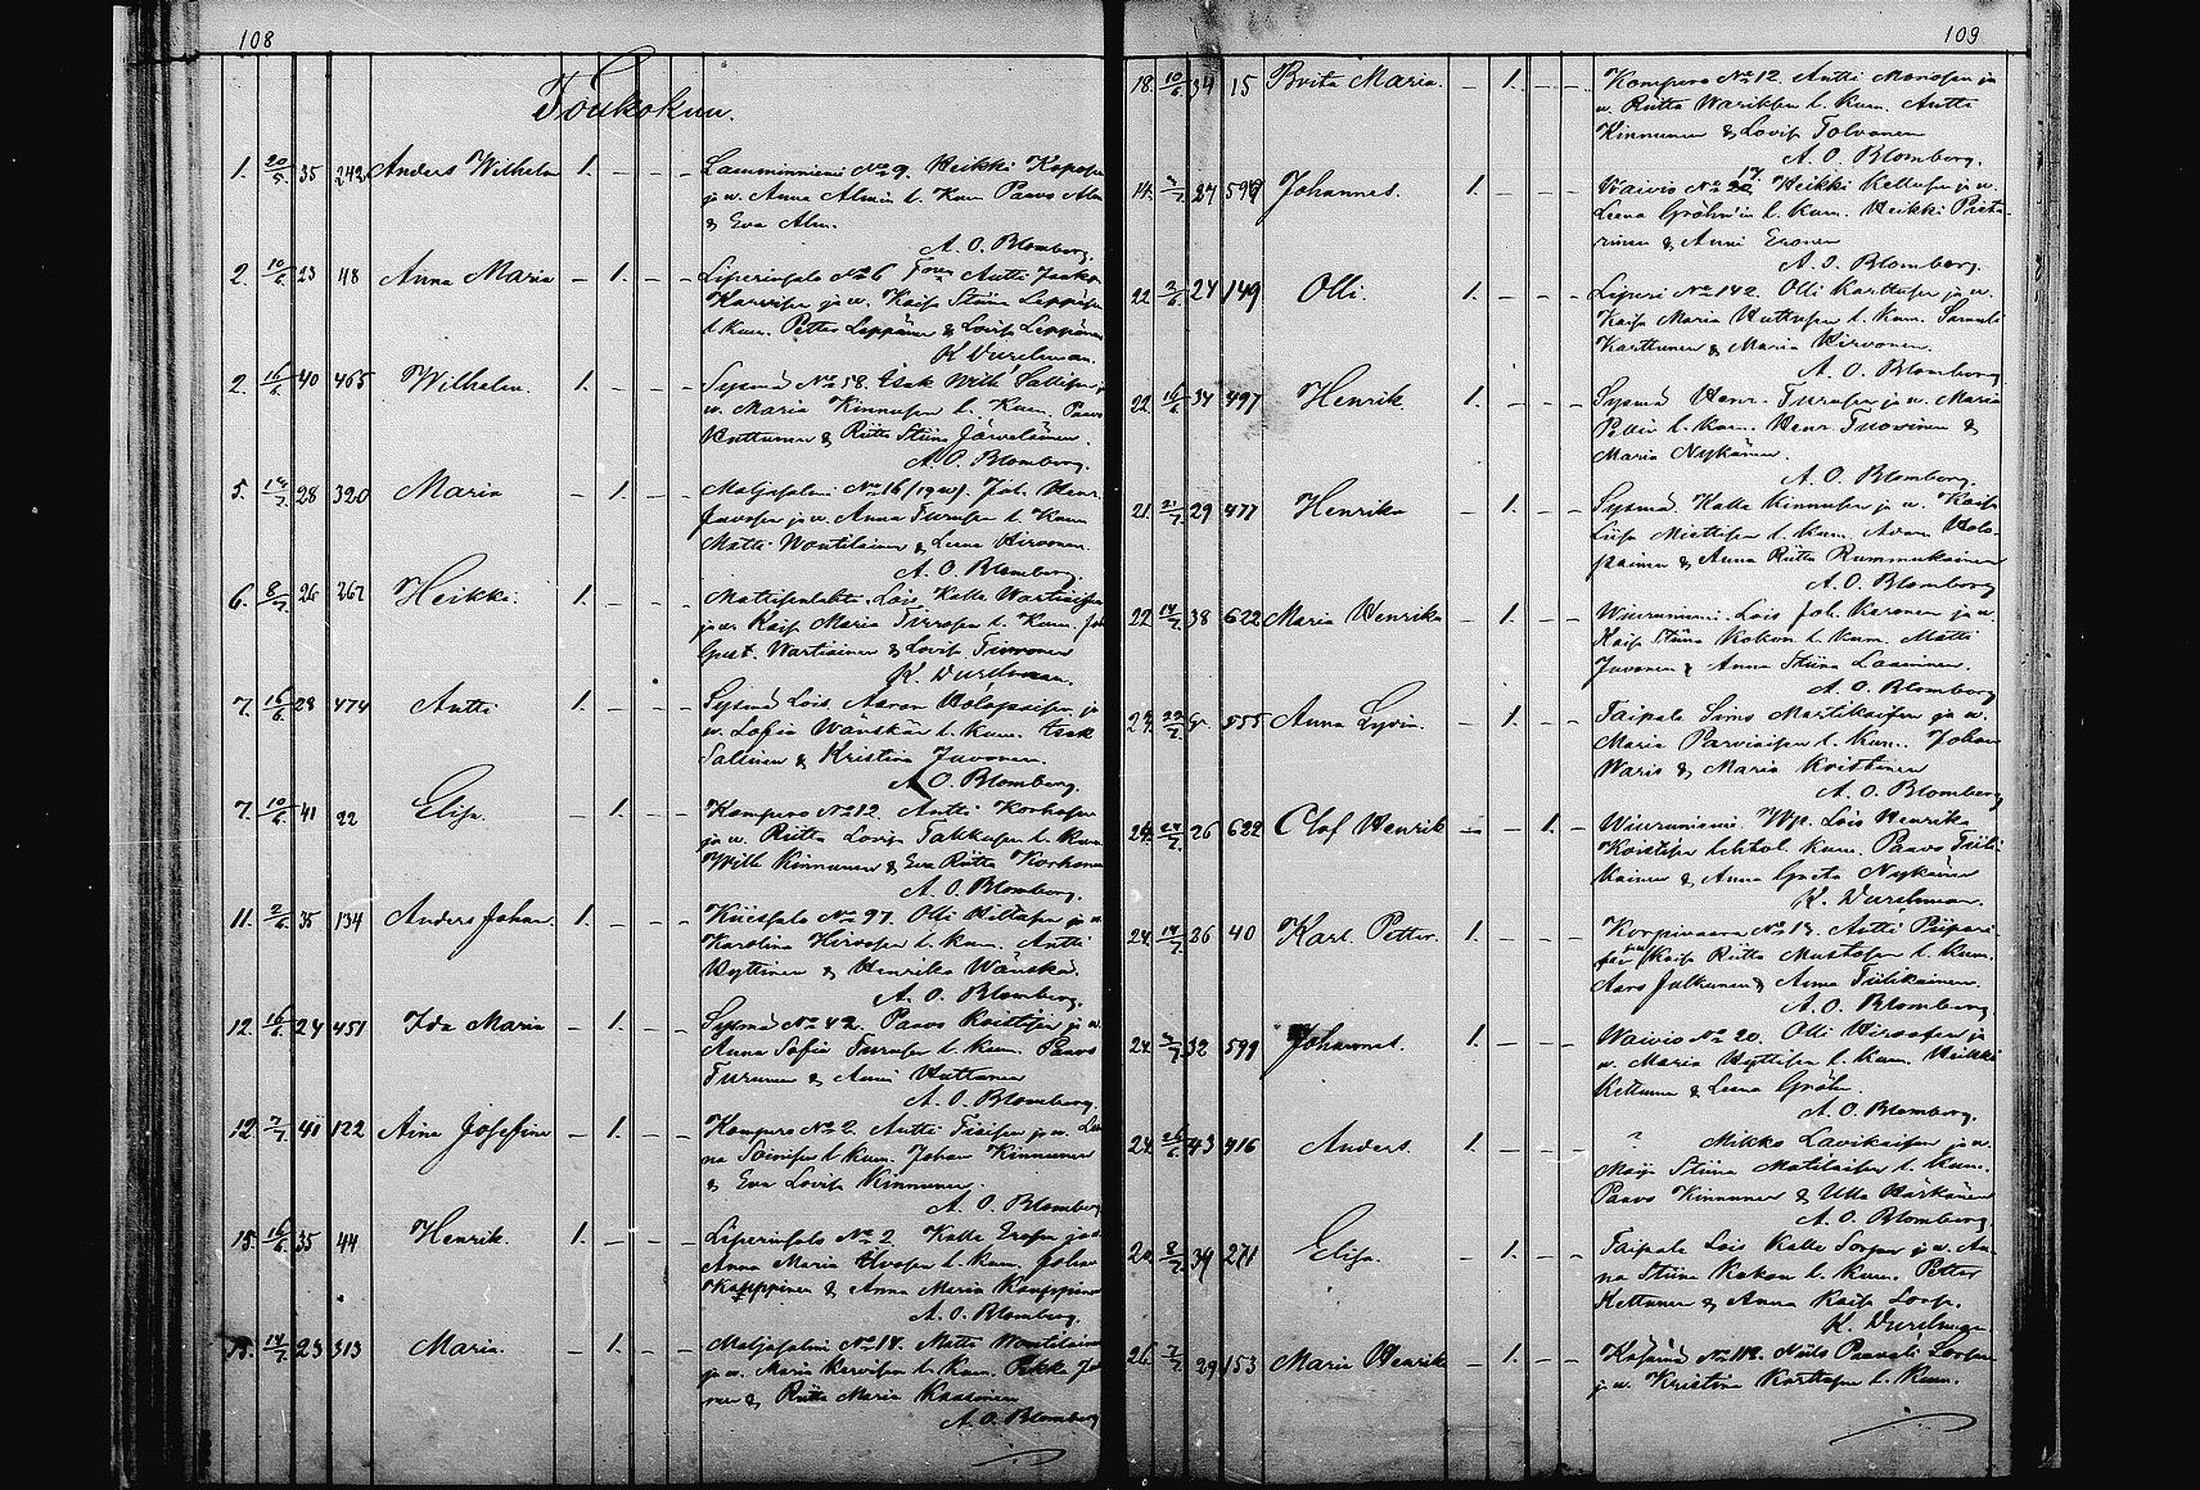 108
Toukokuu.
1. 20/5. 35 242 Anders Wilhelm 1. - - - Lamminniemi No 9. Heikki Kopose
ja v. Anna Almin l. Kum Paavo Alm
& Eva Alm.
A. O. Blomberg.
2. 10/6. 23 48 Anna Maria - 1. - - Liperinsalo No 6 Antti Jaako
ja v. Kaisa Stiina Leppäse
l. Kum. Petter Leppänen & Lovisa Leppänen
K Durchman.
2. 16/6. 40 465 Wilhelm. 1. - - - Sysmä No 58. Isak Wilh Sallisen j
v. Maria Kinnusen l. Kum. Paavo
Huttunen & Riitta Stiina Järveläinen.
A. O. Blomberg.
5. 14/7. 28 320 Maria - 1. - - Maljasalmi No 16/19 Joh. Henr.
Juvosen ja v. Anna Turusen l. Kum
Matti Wontilainen & Leena Hirvonen.
A. O. Blomberg.
6. 8/7. 26 267 Heikki. 1. - - - Mattisenlahti Lois Kalle Wartiaisen
ja v. Kaisa Maria Tirrosen l. Kum. Joh
Gust. Wartiainen & Lovisa Timonen
K. Durchman.
7. 16/6. 28 474 Antti 1. - - - Sysmä Lois Aaron Holopaisen ja
v. Sofia Wänskän l. Kum. Isak
Sallinen & Kristina Juvonen.
A. O. Blomberg.
7. 10/6. 41 22 Elisa. - 1. - - Kompero No 12. Antti Korhosen
ja v. Riitta Lovisa Takkusen l. Kum
Wilh Kinnunen & Eva Riitta Korhonen
A. O. Blomberg.
11. 2/6. 35 134 Anders Johan. 1. - - - Kiiessalo No 97. Olli Hiltusen ja v.
Karolina Hirvosen l. Kum. Antti
Hyttinen & Henrika Wänskä.
A. O. Blomberg.
12. 16/6. 24 451 Ida Maria - 1. - - Sysmä No 42. Paavo Koistisen ja v.
Anna Sofia Turusen l. Kum. Paavo
Turunen & Anni Huttunen
A. O. Blomberg.
12. 7/7. 41 122 Aina Josefina - 1. - - Kompero No 2. Antti Tiaisen ja v. Lee
na Soinisen l. Kum. Johan Kinnunen
& Eva Lovisa Kinnunen.
A. O. Blomberg
15. 16/6. 35 44 Henrik. 1. - - - Liperinsalo No 2 Kalle Erosen ja v.
Anna Maria l. Kum. Johan
Kauppinen & Anna Maria Kauppinen
A. O. Blomberg.
15. 14/7. 23 313 Maria. - 1. - - Maljasalmi No 18. Matti Wontilainen
ja v. Maria Karvisen l. Kum. Pekka
& Riitta Maria Kaasonen
A. O. Blomberg
109
18. 10/6. 34 15 Brita Maria. - 1. - - Kompero No 12. Antti Manosen ja
v. Riitta Wariksen l. Kum. Antti
Kinnunen & Lovisa Tolvanen
A. O. Blomberg.
14. 7/7. 27 Johannes. 1. - - - Waivio No 17. Heikki Kettusen ja v.
Leena Gröhn'in l. Kum. Heikki Pieta-
rinen & Anni Eronen
A. O. Blomberg.
22 2/6. 24 149 Olli. 1. - - - Liperi No 142. Olli Karttusen ja v.
Kaisa Maria Huttusen l. Kum. Samuli
Karttunen & Maria Hirvonen.
A. O. Blomberg
22. 16/6. 34 497 Henrik. 1. - - - Sysmä Henr. Turusen ja v. Maria
l. Kum. Henr. Tuovinen &
Maria Nykänen.
A. O. Blomberg.
21. 21/7. 29 477 Henrika - 1. - - Sysmä. Kalle Kinnusen ja v. Kaisa
Liisa Miettisen l. Kum. Adam Holo-
painen & Anna Riitta Rummukainen
A. O. Blomberg
22 14/7. 38 622 Maria Henrika - 1. - - Wiiniemi. Lois Joh. Karonen ja v.
Kaisa Stiina Kokon l. Kum. Matti
Juvonen & Anna Stiina Laaninen.
A. O. Blomberg
22/7. 555 Anna Lyydia. - 1. - - Taipale Simo Martikaisen ja v.
Maria Parviaisen l. Kum. Johan
Waris & Maria Koistinen
A. O. Blomberg
24. 26 622 Olof Henrik - - 1. - Lois Henrika
Koistisen l. Kum. Paavo Tiili-
kainen & Anna Greta Nykänen
K. Durchman.
24. 14/7. 26 40 Karl Petter. 1. - - - Korpivaara No 13. Antti Piipari-
sen Kaisa Riitta Mustosen l. Kum.
Aaro Julkunen & Anna Tiilikainen.
A. O. Blomberg
24. 7/7. 32 599 Johannes. 1. - - - Waivio No 20. Olli Hirvosen ja
v. Maria Hyttisen l. Kum. Heikki
Kettunen & Leena Gröhn.
A. O. Blomberg.
24. 16/6. 43 416 Anders. 1. - - - ? Mikko Lavikaisen ja v.
Maija Stiina Matilaisen l. Kum.
Paavo Kinnunen & Ulla Härkönen
A. O. Blomberg.
20. 8/7. 39 271 Elisa. - 1. - - Taipale Lois Kalle Sorsen ja v. An-
na Stiina Kokon l. Kum. Petter
Kettunen & Anna Kaisa Sorsa.
K. Durchman.
26. 7/7. 29 153 Maria Henrika - 1. - - No 112. Niilo Paavali
ja v. Kristina Karttusen l. Kum.